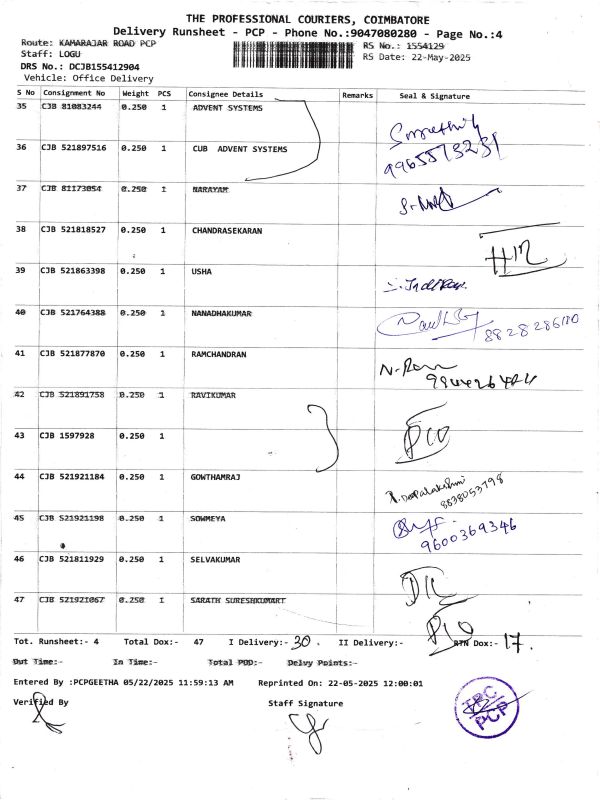 THE PROFESSIONAL COURIERS, COIMBATORE
Delivery Runsheet - PCP - Phone No.:9047080280 - Page No.:4
Route: KAMARAJAR ROAD PCP RS No.: 1554129
Staff: LOGU RS Date: 22-May-2025
DRS No.: DCJB155412904
Vehicle: Office Delivery
S No Consignment No Weight PCS Consignee Details Remarks Seal & Signature
35 CJB 81083244 0.250 1 ADVENT SYSTEMS
36 CJB 521897516 0.250 1 CUB ADVENT SYSTEMS
9965573231
37 CJB 81173054 0.250 1 NARAYAM
38 CJB 521818527 0.250 1 CHANDRASEKARAN
39 CJB 521863398 0.250 1 USHA
40 CJB 521764388 0.250 1 NANADHAKUMAR
41 CJB 521877870 0.250 1 RAMCHANDRAN
N. Ram
42 CJB 521891758 0.250 1 RAVIKUMAR
43 CJB 1597928 0.250 1
44 CJB 521921184 0.250 1 GOWTHAMRAJ
8838053798
45 CJB 521921198 0.250 1 SOWMEYA
9600369346
46 CJB 521811929 0.250 1 SELVAKUMAR
47 CJB 521921067 0.250 1 SARATH SURESHKUMART
Tot. Runsheet:- 4 Total Dox:- 47 I Delivery:- 30. II Delivery:- RTN Dox:- 17.
Out Time:- In Time:- Total POD:- Delvy Points:-
Entered By :PCPGEETHA 05/22/2025 11:59:13 AM Reprinted On: 22-05-2025 12:00:01
Verified By Staff Signature
PCP